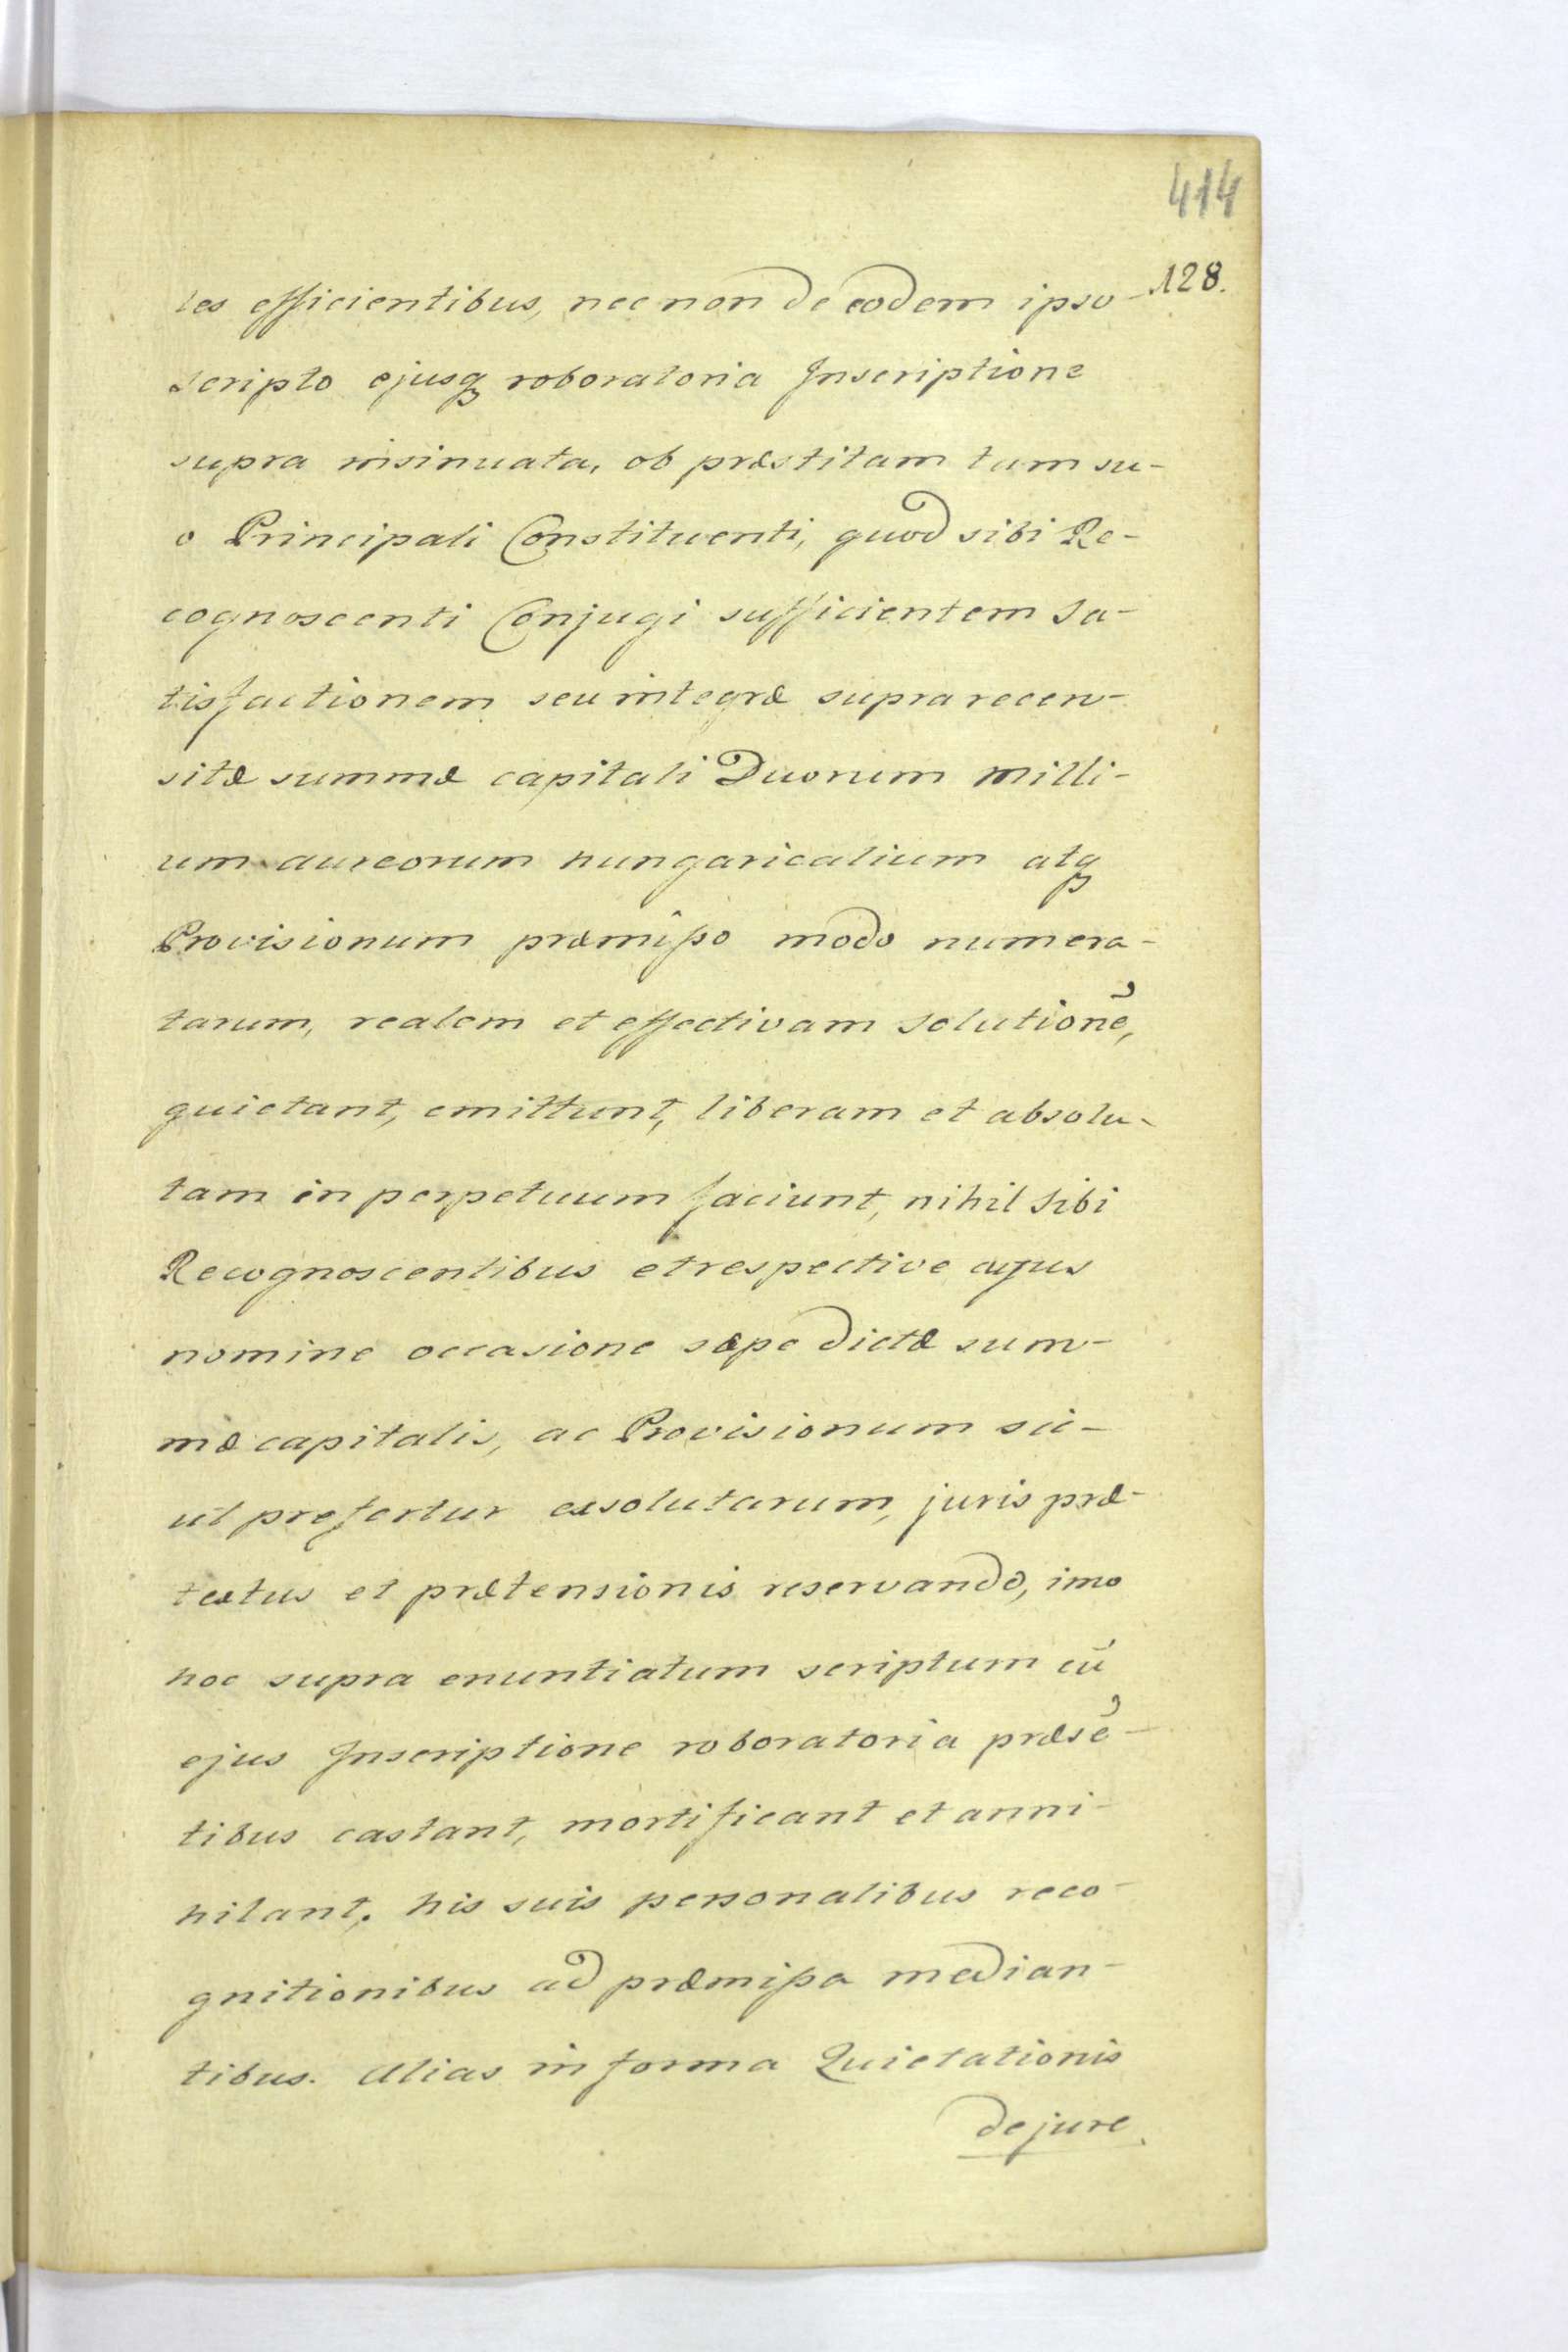 414
128.
les efficientibus, nec non de eodem ipso-
scripto ejusq roboratoria Inscriptione
supra insinuata, ob præstitam tum su-
o Principali Constituenti, quod sibi Re-
cognoscenti Conjugi sufficientem sa-
tisfactionem seu integræ supra recen-
sitæ summæ capitali Duorum milli-
um aureorum hungaricalium atq
Provisionum præmißo modo numera-
tarum, realem et effectivam solutionē,
quietant, emittunt, liberam et absolu-
tam in perpetuum faciunt, nihil sibi
Recognoscentibus et respective cujus
nomine occasione sæpe dictæ sum-
mæ capitalis, ac Provisionum sic-
ut prefertur exsolutarum, juris præ-
textus et prætensionis reservando, imo
hoc supra enuntiatum scriptum cū
ejus Inscriptione roboratoria præsē-
tibus castant, mortificant et anni-
hilant, his suis personalibus reco-
gnitionibus ad præmißa median-
tibus. Alias in forma Quietationis
de jure